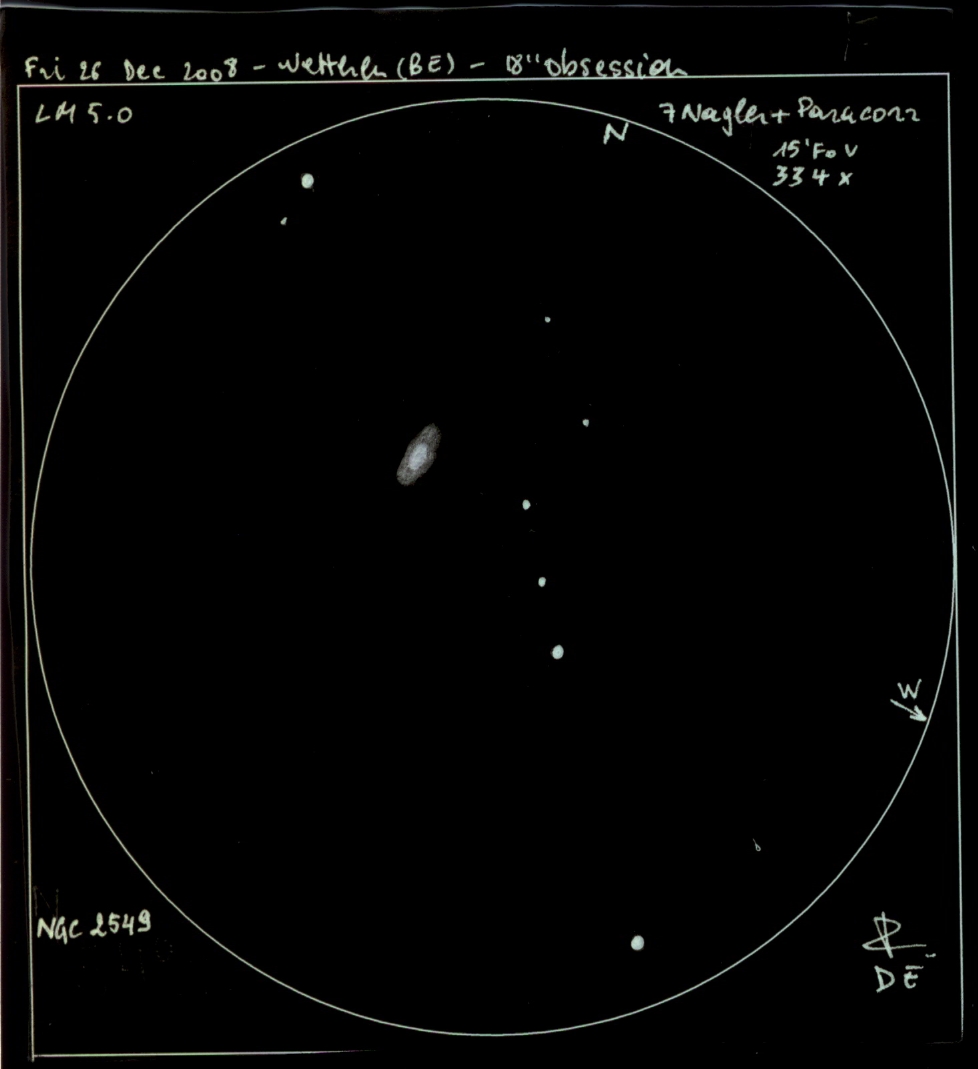 Fri 26 Dec 2008 - Wetteren (BE) - 18" Obsession
LM 5.0
7 Nagler + Paracorr
15' FoV
334 x
N
W
NGC 2549
DE